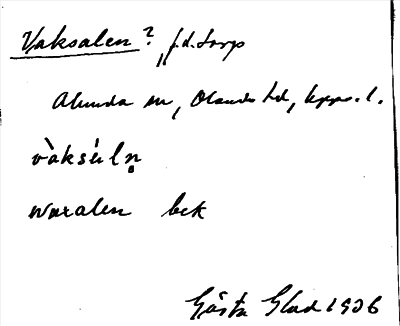 Vaksalen?, f.d. torp
Alunda sn, Olands hd, Upps. l.
vàksàlṇ
waxalen bek
Gösta Glad 1906